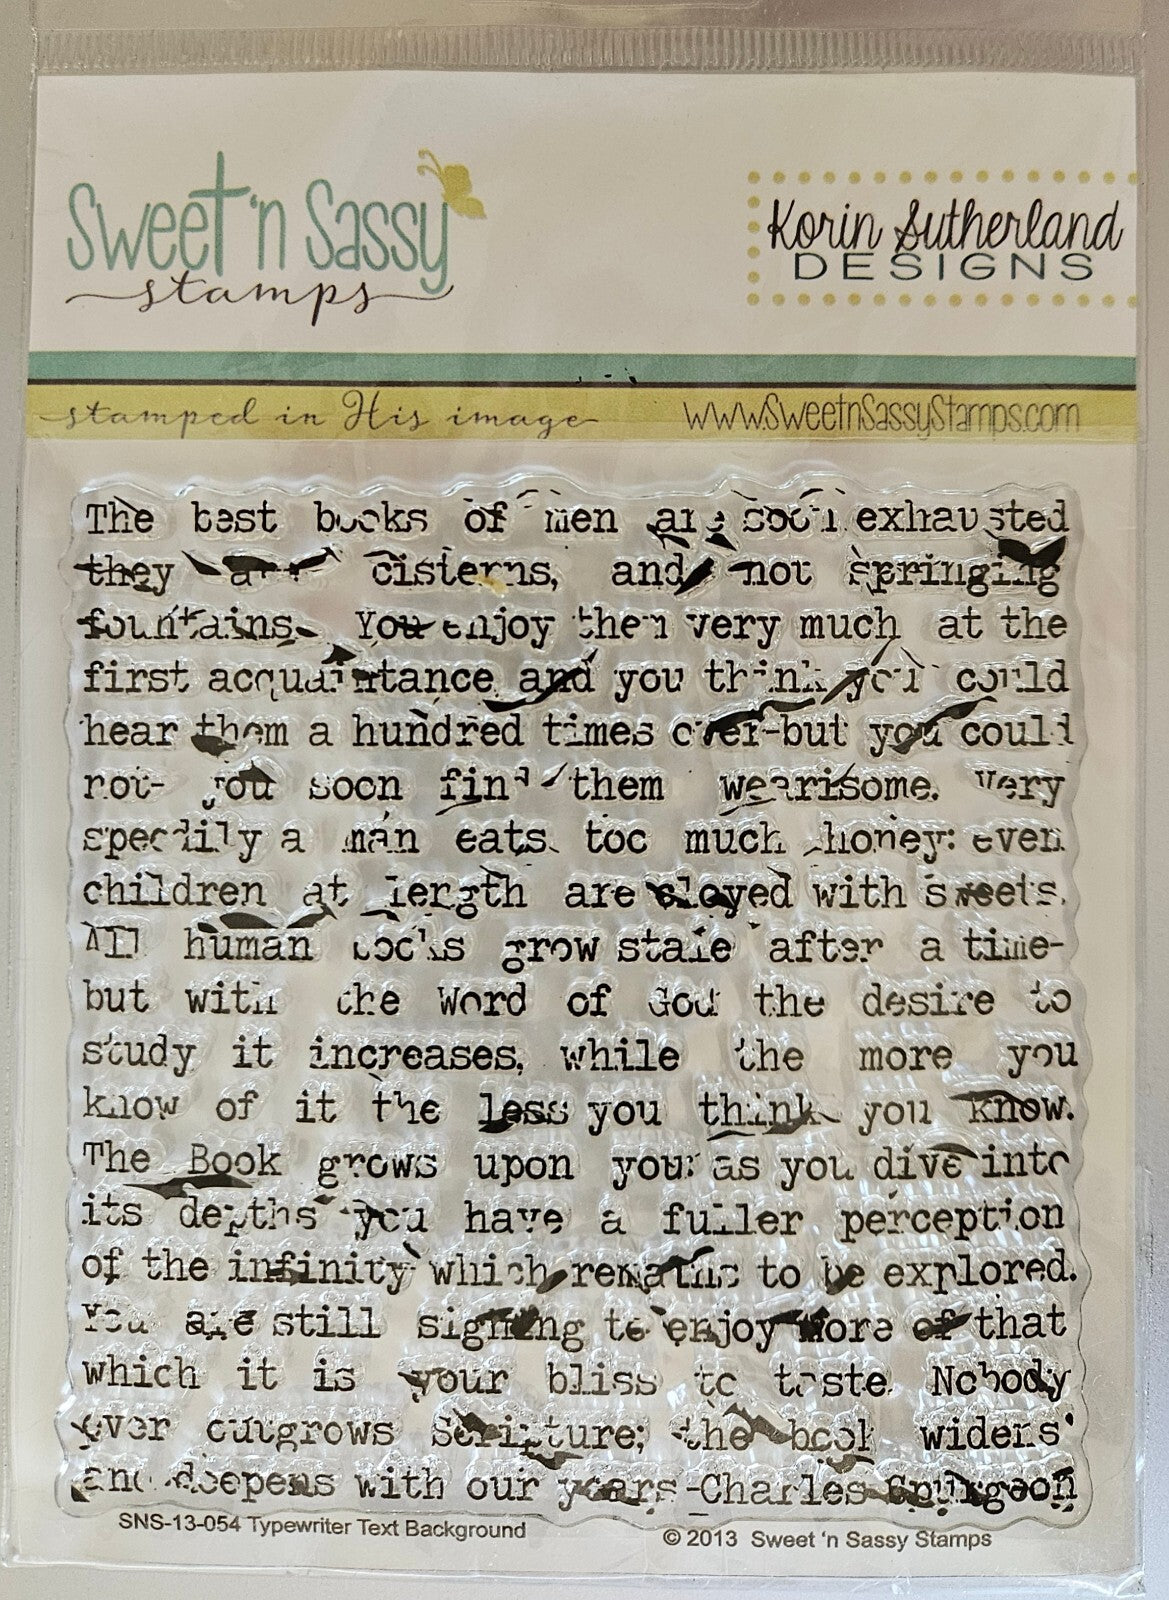 Sweet 'n Sassy
stamps
Korin Sutherland
DESIGNS
stamped in His image
www.SweetnSassyStamps.com
The best books of men are soon exhausted
they are cisterns, and not springing
fountains. You enjoy them very much at the
first acquaintance and you think you could
hear them a hundred times over-but you could
not- you soon find them wearisome. Very
speedily a man eats too much honey: even
children at length are cloyed with sweets.
All human books grow stale after a time-
but with the Word of God the desire to
study it increases, while the more you
know of it the less you think you know.
The Book grows upon you: as you dive into
its depths you have a fuller perception
of the infinity which remains to be explored.
You are still sighing to enjoy more of that
which it is your bliss to taste. Nobody
ever outgrows Scripture; the book widens
and deepens with our years -Charles Spurgeon
SNS-13-054 Typewriter Text Background
© 2013 Sweet 'n Sassy Stamps